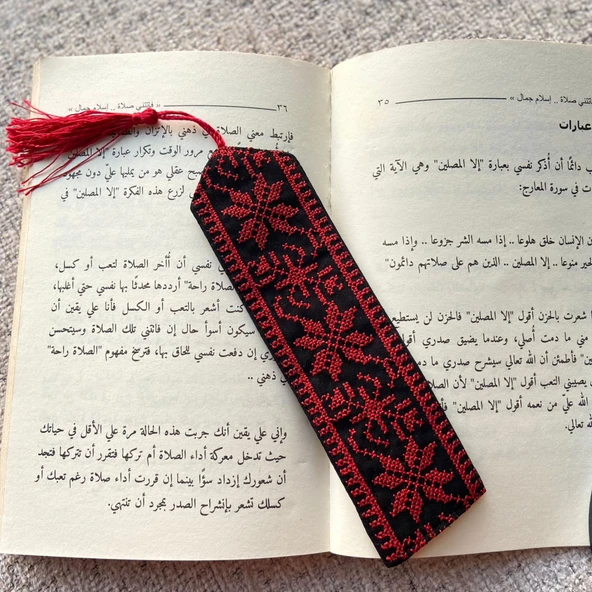 فاتتني صلاة .. إسلام جمال »
٣٥
عبارات
دائمًا أن أُذكر نفسي بعبارة "إلا المصلين" وهي الآية التي
في سورة المعارج:
الإنسان خلق هلوعا .. إذا مسه الشر جزوعا .. وإذا مسه
الخير منوعا .. إلا المصلين .. الذين هم على صلاتهم دائمون"
شعرت بالحزن أقول "إلا المصلين" فالحزن لن يستطيع
مني ما دمت أُصلي، وعندما يضيق صدري
فأطمئن أن الله تعالى سيشرح صدري ما
يصيبني التعب أقول "إلا المصلين" لأن
الله عليّ من نعمه أقول "إلا المصلين"
الله تعالى.
٣٦
« فاتتني صلاة .. إسلام جمال »
فارتبط معنى الصلاة في ذهني بالإتزان
مرور الوقت وتكرار عبارة "إلا المصلين"
عقلي هو من يمليها عليّ دون مجهود
لزرع هذه الفكرة "إلا المصلين" في
نفسي أن أُأخر الصلاة لتعب أو كسل،
راحة" أرددها محدثًا بها نفسي حتى أغلبها،
كنت أشعر بالتعب أو الكسل فأنا علي يقين أن
سيكون أسوأ حال إن فاتتني تلك الصلاة وسيتحسن
إن دفعت نفسي للحاق بها، فترسخ مفهوم "الصلاة راحة"
ذهني ..
وإني علي يقين أنك جربت هذه الحالة مرة علي الأقل في حياتك
حيث تدخل معركة أداء الصلاة أم تركها فتقرر أن تتركها فتجد
أن شعورك إزداد سوًا بينما إن قررت أداء صلاة رغم تعبك أو
كسلك تشعر بإنشراح الصدر بمجرد أن تنتهي.